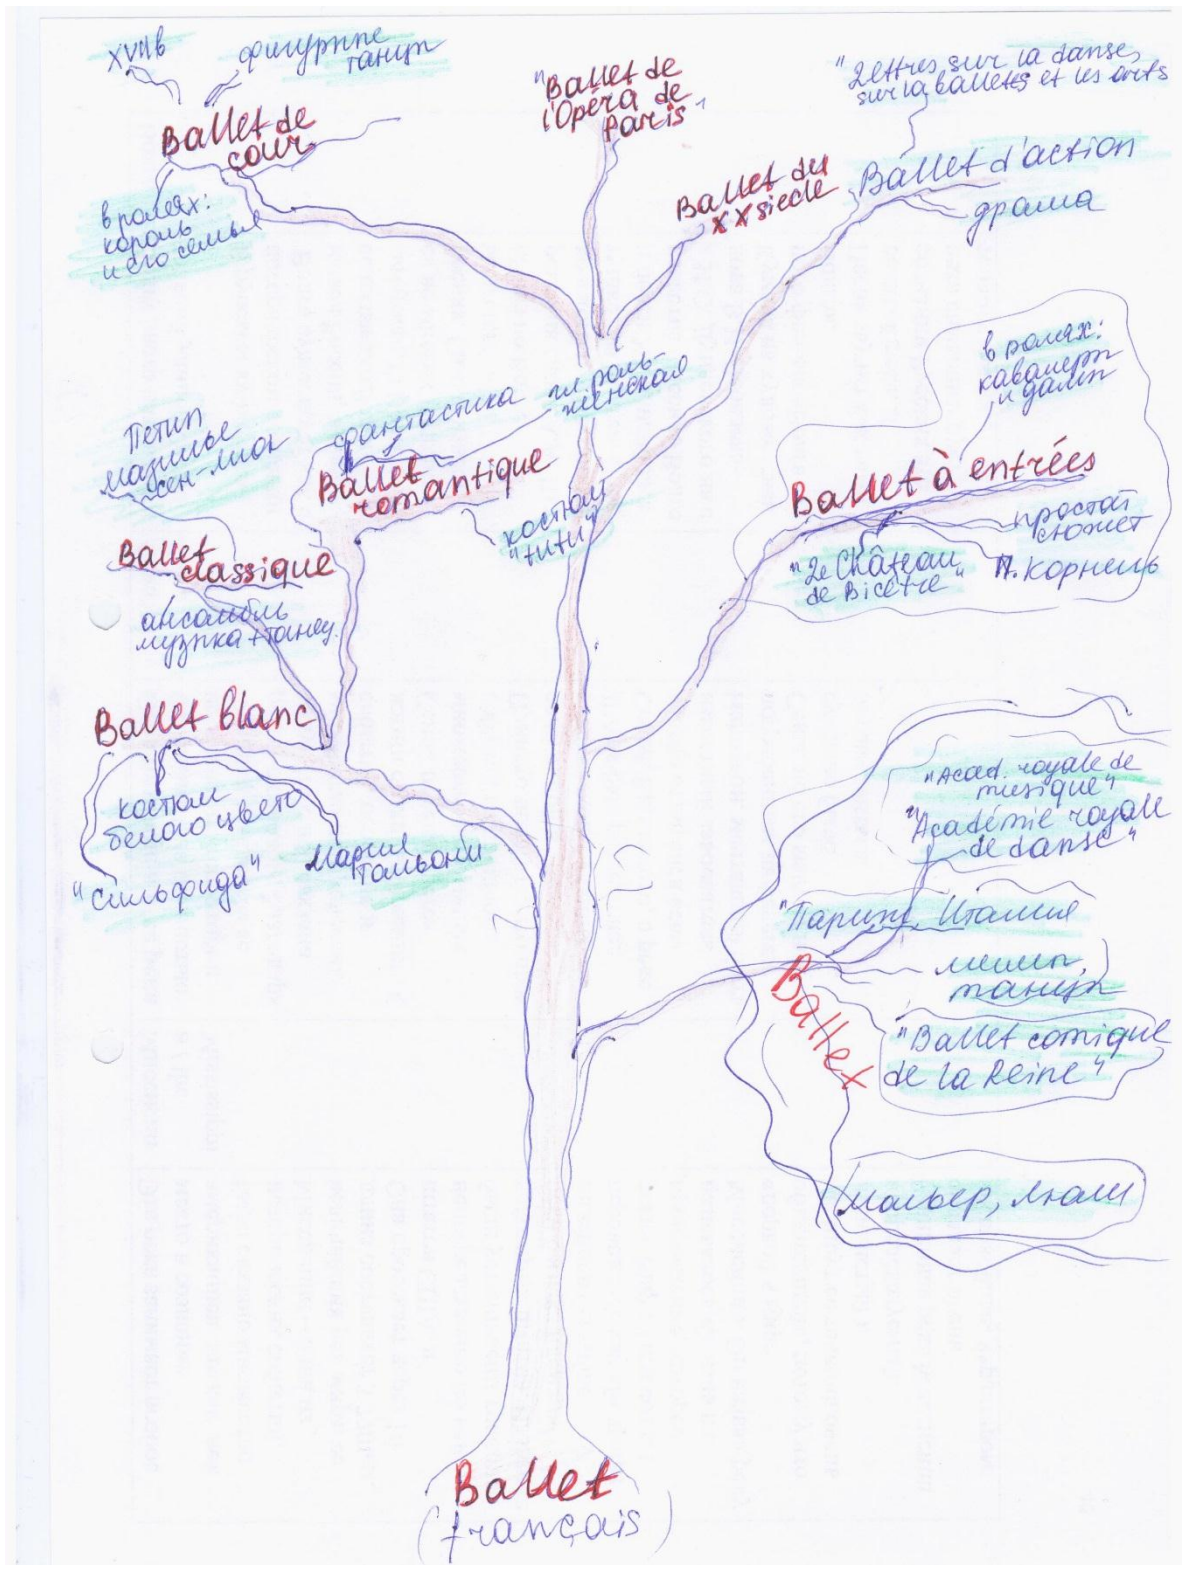 XVIIв
фигурные
танцы
Ballet de
cour
в ролях:
король
и его семья
"Ballet de
l'Opéra de
Paris"
Ballet du
XX siecle
"Lettres sur la danse,
sur la ballets et les arts
Ballet d'action
драма
в ролях:
кавалеры
и дамы
Ballet à entrées
простой
сюжет
"Le Château
de Bicêtre"
П. Корнель
гл. роль-
женская
фантастика
Ballet
romantique
костюм
"tutu"
Петип
мазилье
сен-лион
Ballet
classique
ансамбль
музыка + танец
Ballet blanc
костюм
белого цвета
"Сильфида"
Мария
Тальони
"Acad. royale de
musique"
"Académie royale
de danse"
"Париж, Италия
мимы,
танцы
Ballet
"Ballet comique
de la Reine"
мольер, люлли
Ballet
(français)